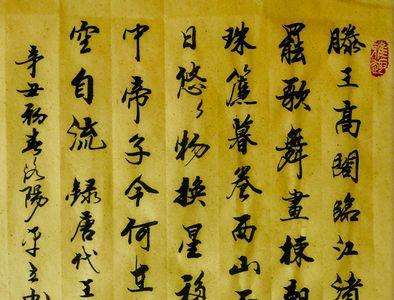 滕王高閣臨江渚
罷歌舞畫棟朝
珠簾暮卷西山雨
日悠々物換星移
中帝子今何在
空自流 錄唐代王
辛丑初春洛陽